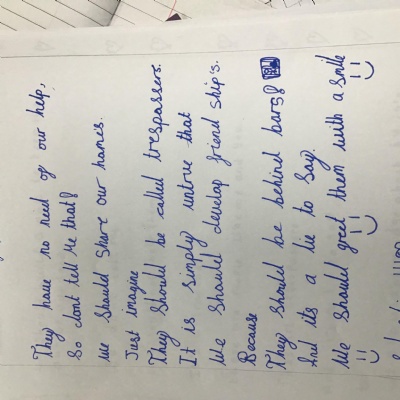 They have no need of our help,
So dont tell me that?
We should share our homes.
Just imagine
They should be called trespassers.
It is simply untrue that
We should develop friend ship's.
Because
They should be behind bars?
And its a lie to say.
We should greed them with a smile